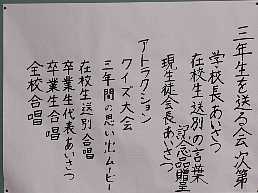 三年生を送る会 次第
学校長あいさつ
在校生 送別の言葉
記念品贈呈
現生徒会長あいさつ
アトラクション
クイズ大会
三年間の思い出ムービー
在校生 送別合唱
卒業生代表あいさつ
卒業生合唱
全校合唱